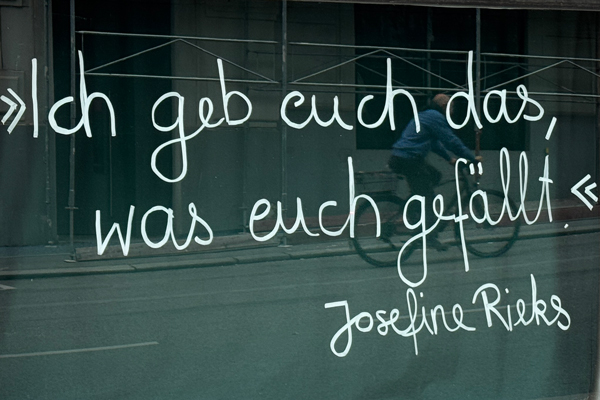 »Ich geb euch das,
was euch gefällt.«
Josefine Rieks